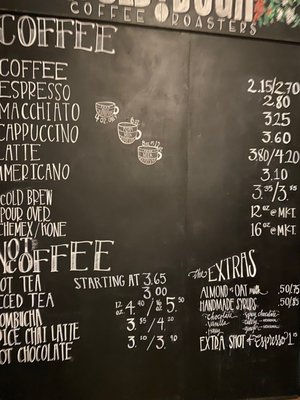 COFFEE ROASTERS
COFFEE
COFFEE 2.15/2.70
ESPRESSO 2.80
MACCHIATO 3.25
CAPPUCCINO 3.60
LATTE 3.80/4.20
AMERICANO 3.10
COLD BREW
POUR OVER 12 oz @ MKT.
CHEMEX/HONE 16 oz @ MKT.
NOT
COFFEE
OT TEA STARTING AT 3.65
CED TEA 3.00
OMBUCHA 12 OZ. 4.40/16 OZ. 5.50
PICE CHAI LATTE
OT CHOCOLATE
The EXTRAS
ALMOND or OAT milk .50/.75
HANDMADE SYRUPS .50/.85
chocolate
vanilla
EXTRA SHOT of ESPRESSO